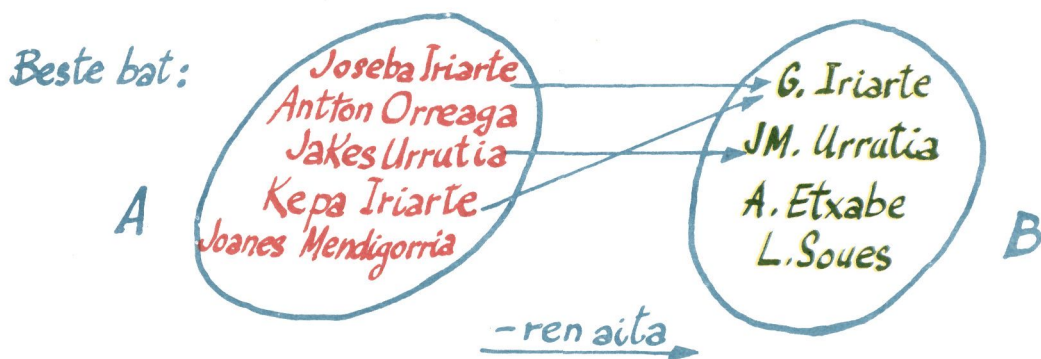 Beste bat:
Joseba Iriarte
Antton Orreaga
Jakes Urrutia
Kepa Iriarte
Joanes Mendigorria
A
G. Iriarte
JM. Urrutia
A. Etxabe
L. Soues
B
-ren aita